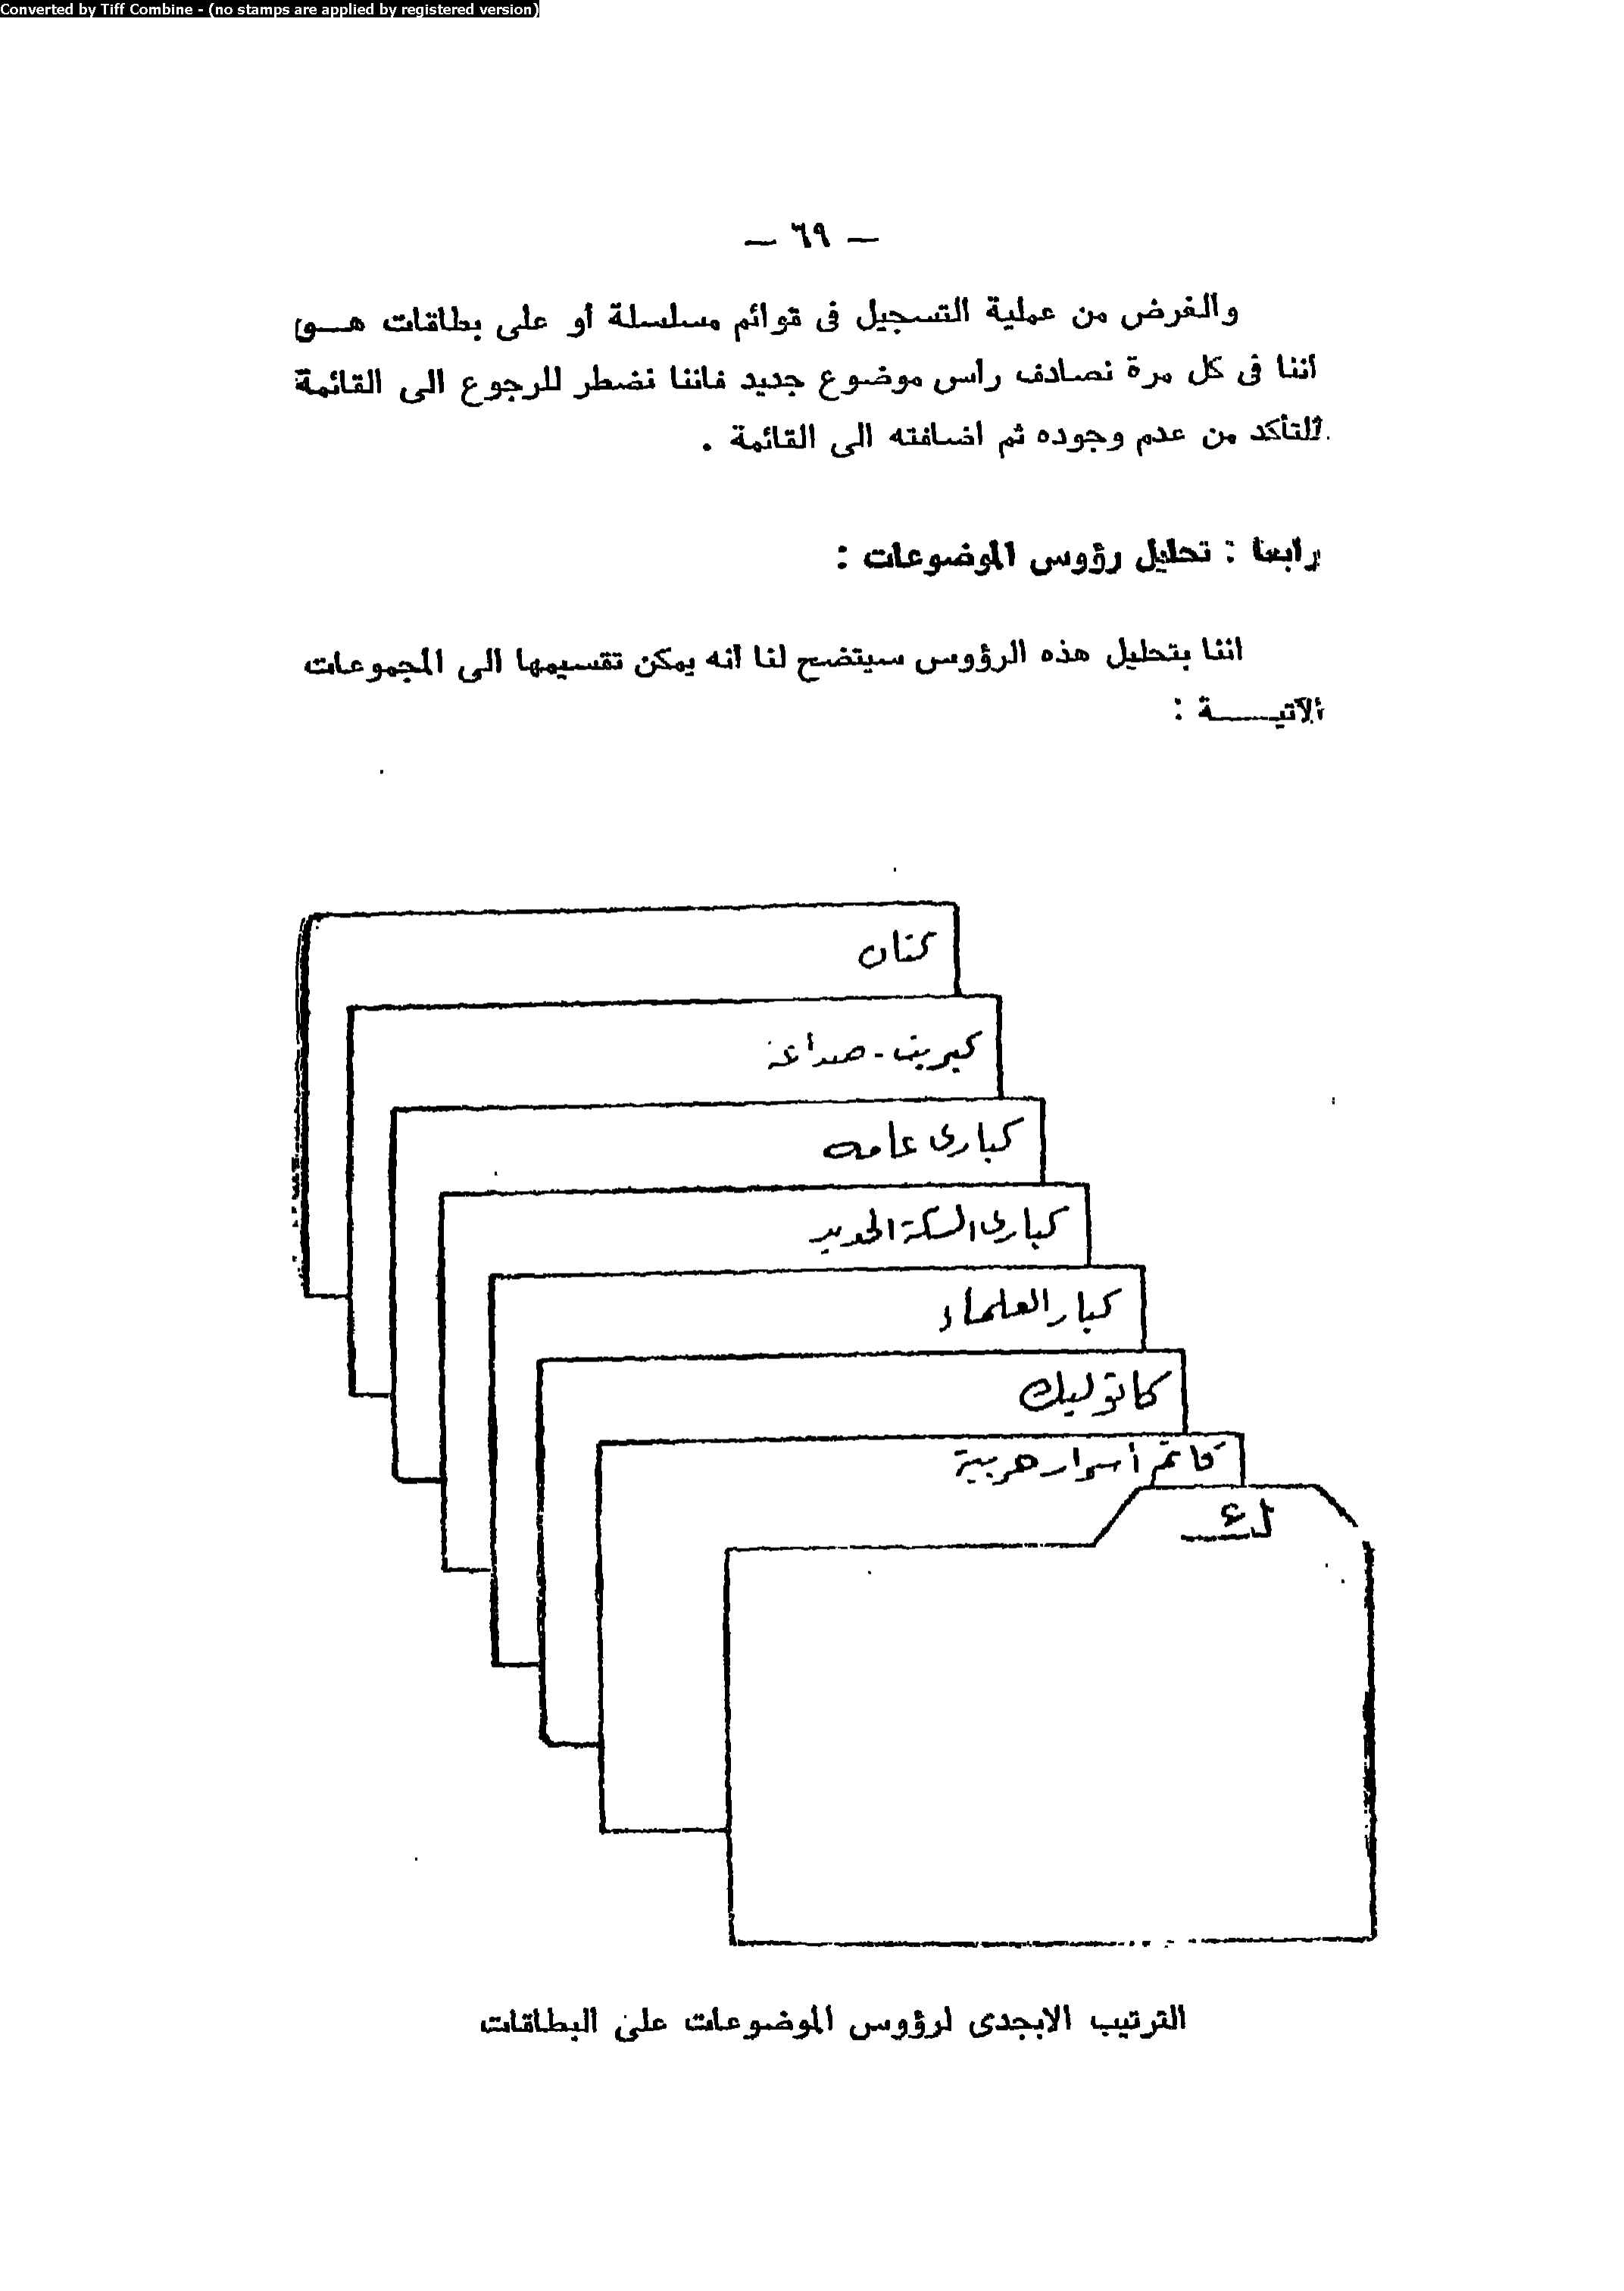 Converted by Tiff Combine - (no stamps are applied by registered version)
— ٦٩ —
والغرض من عملية التسجيل فى قوائم مسلسلة أو على بطاقات هــو
أننا فى كل مرة نصادف رأس موضوع جديد فاننا نضطر للرجوع الى القائمة
للتأكد من عدم وجوده ثم اضافته الى القائمة .
رابعا : تحليل رؤوس الموضوعات :
اننا بتحليل هذه الرؤوس سيتضح لنا أنه يمكن تقسيمها الى المجموعات
الآتيــــة :
كتان
كبريت - صناعة
كبارى عامه
كبارى السكة الحديد
كبار العلماء
كاثوليك
كاتم أسرار حربية
ك
الترتيب الابجدى لرؤوس الموضوعات على البطاقات